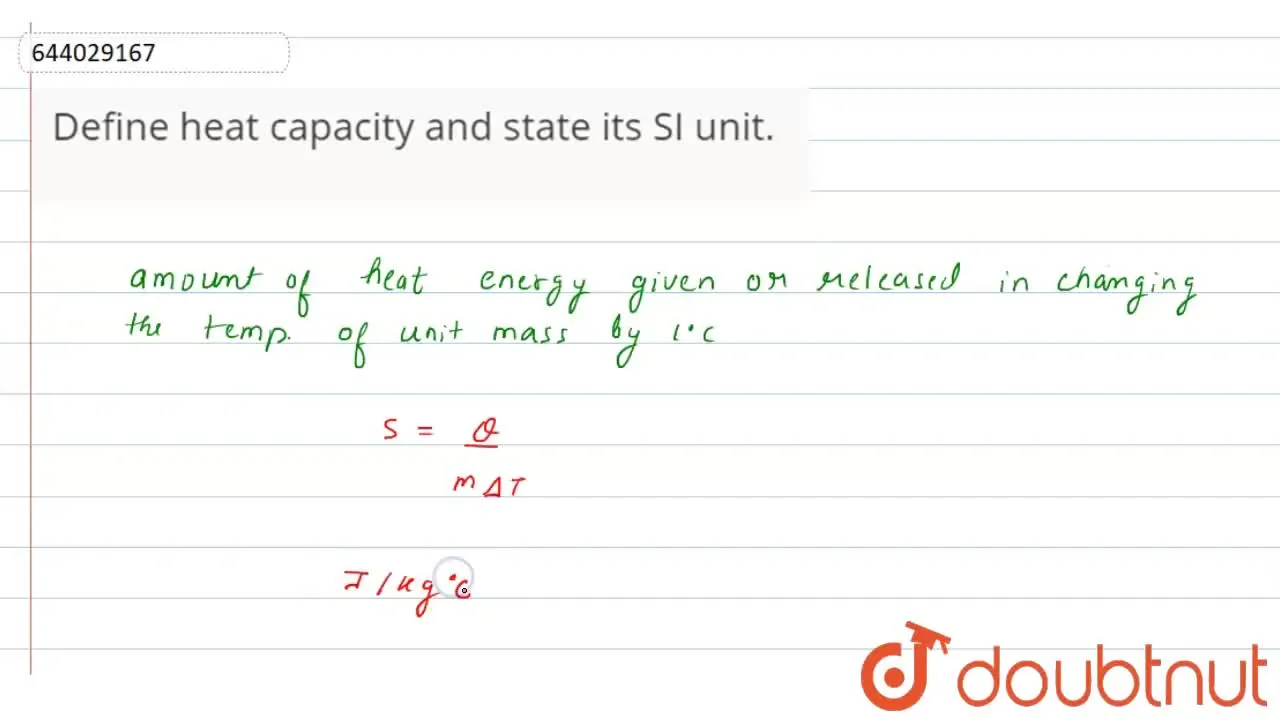 644029167
Define heat capacity and state its SI unit.
amount of heat energy given or released in changing
the temp. of unit mass by 1°C
S = Q
m ΔT
J/kg °C
doubtnut